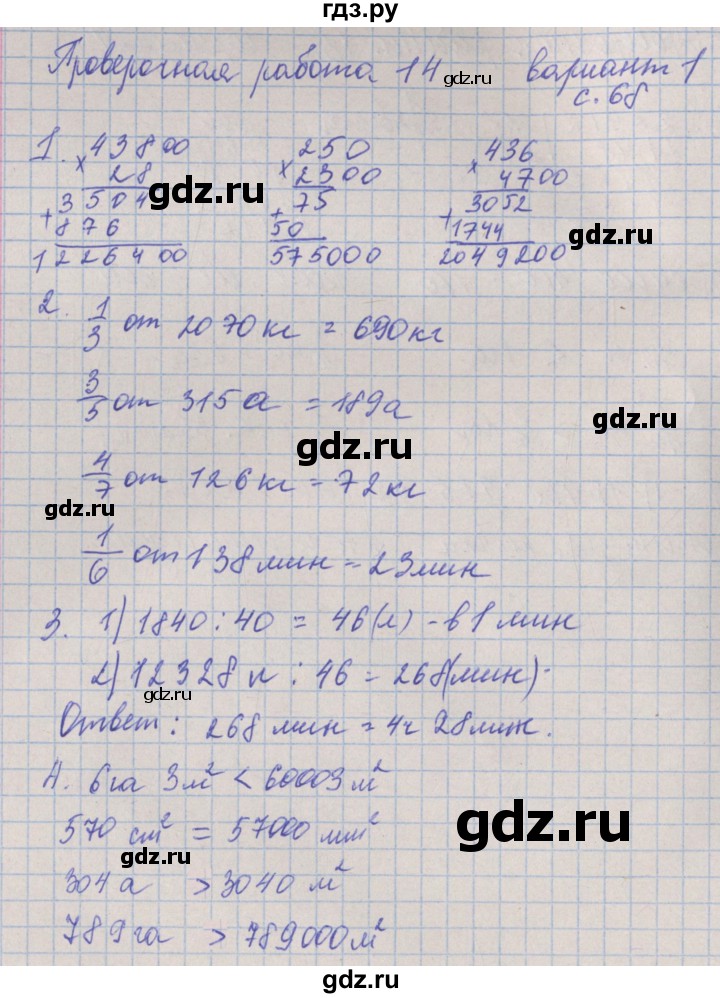 гдз.ру
Проверочная работа 14 gdz.ru вариант 1
с. 68
1. 43800 250 436
× 28 × 2300 × 4700
3504 75 3052
+ 876 + 50 + 1744
1226400 575000 2049200
2. 1/3 от 2070 кг = 690 кг
3/5 от 315 а = 189 а
gdz.ru
4/7 от 126 кг = 72 кг
gdz.ru
1/6 от 138 мин = 23 мин
3. 1) 1840 : 40 = 46 (л) - в 1 мин
2) 12328 л : 46 = 268 (мин) -
gdz.ru
Ответ: 268 мин = 4ч 28 мин.
4. 6 га 3 м² < 60003 м²
570 см² = 57000 мм²
gdz.ru
gdz.ru
304 а > 3040 м²
789 га > 789000 м²
gdz.ru